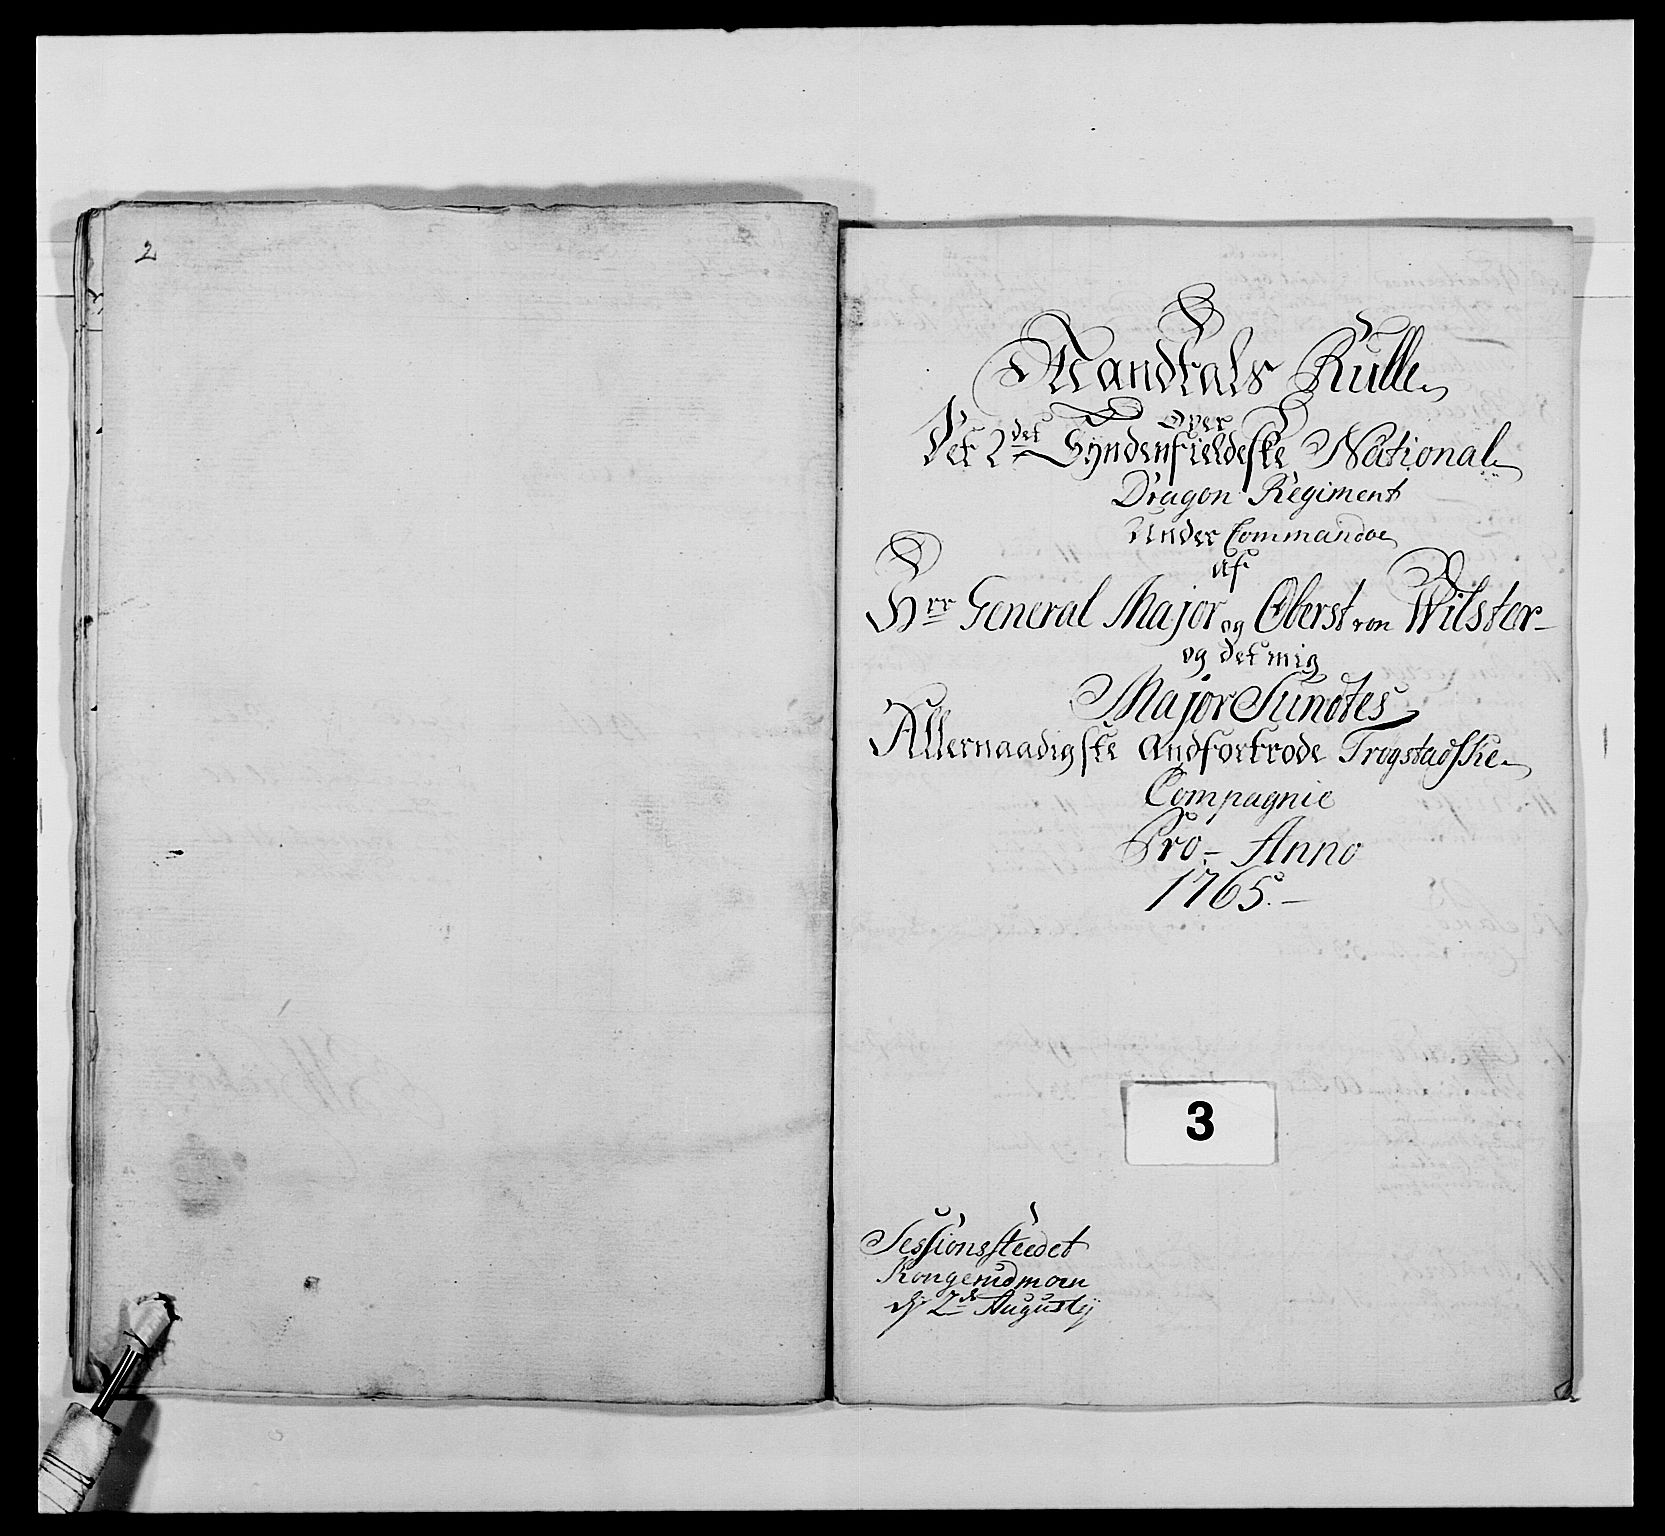 2
Mandtals Rulle
Over
Det 2det Syndenfieldske National
Dragon Regiment
Under Commandoe
af
Hrr General Major og Oberst von Wilster
og det mig
Major Sundtes
Allernaadigste andfortrode Trogstadske
Compagnie
Pro Anno
1765.
3
Sessionssteedet
Kongerudmoen
d: 2de Augustij